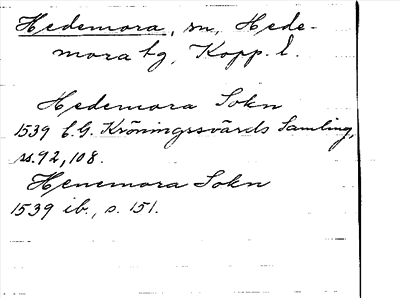 Hedemora, sn, Hede-
mora tg, Kopp. l.
Hedemora Sokn
1539 C.G. Kröningssvärds Samling,
ss. 92, 108.
Henemora Sokn
1539 ib., s. 151.